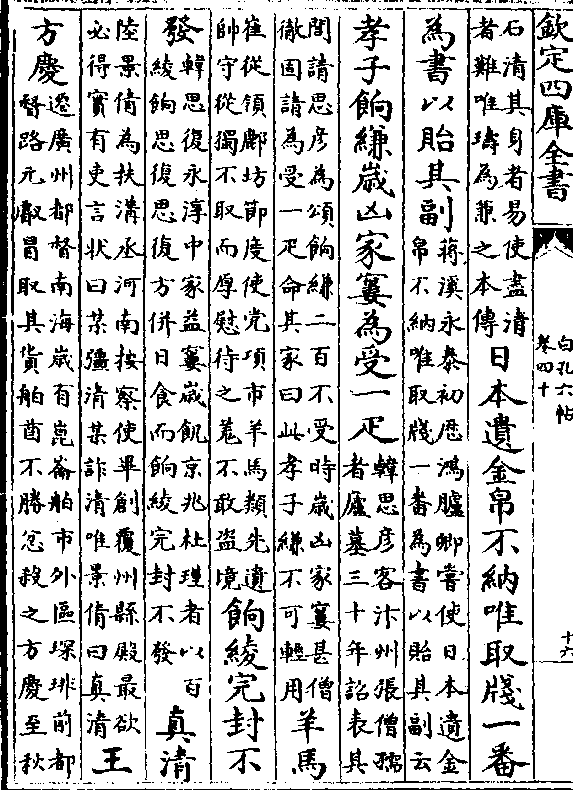 欽定四庫全書
白孔六帖
卷四十
十六
石清其身者易使盡清
者難唯璹為兼之本傳
日本遺金帛不納唯取牋一番
為書以貽其副
蔣溪永泰初歷鴻臚卿嘗使日本遺金
帛不納唯取牋一番為書以貽其副云
孝子餉縑歲凶家窶為受一疋
韓思彦客汴州張僧孺
者廬墓三十年詔表其
閭請思彦為頌餉縑二百不受時歲凶家窶甚僧
徹固請為受一疋命其家曰此孝子縑不可輕用
羊馬
崔從領鄜坊節度使党項市羊馬類先遺
帥守從獨不取而厚慰待之羌不敢盗境
餉綾完封不
發
韓思復永淳中家益窶歲飢京兆杜瑾者以百
綾餉思復思復方併日食而餉綾完封不發
真清
陸景倩為扶溝丞河南按察使畢創覆州縣殿最欲
必得實有吏言狀曰某彊清某詐清唯景倩曰真清
王
方慶
遷廣州都督南海歲有崑崙舶市外區琛琲前都
督路元叡冒取其貨舶酋不勝忿殺之方慶至秋